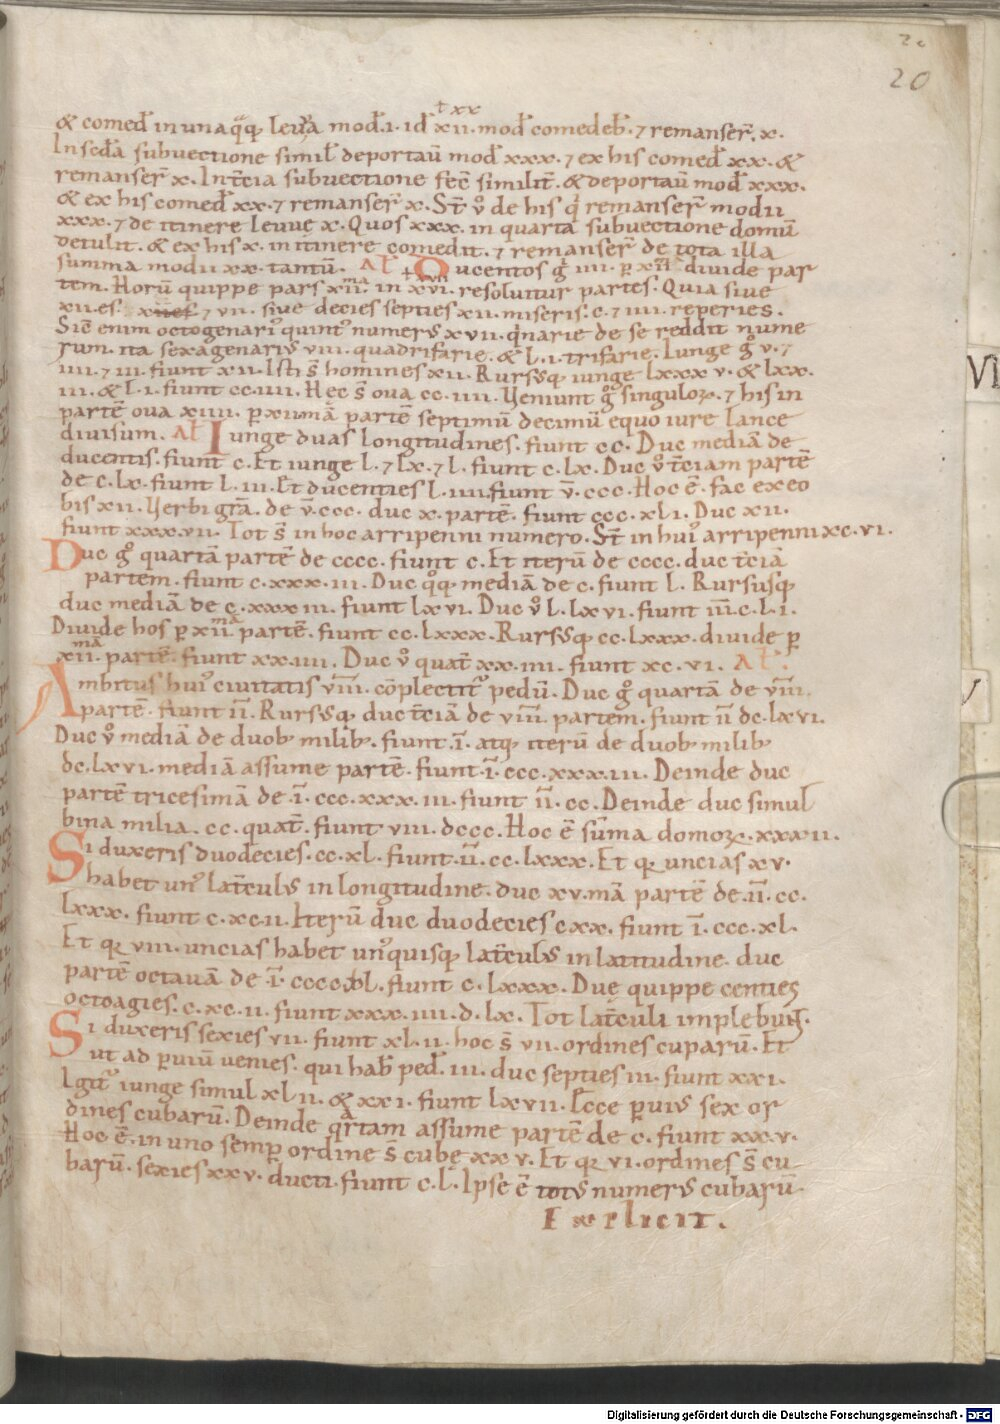 20
20
† xx
& comed̄ in una q̄q; leuua mod̄. i. id̄ xii. mod̄ comedeb̄. ⁊ remanser̄. x.
In secd̄a subuectione simil̄ deportaū mod̄ xxx. ⁊ ex his comed̄ xx. &
remanser̄ x. In t̄cia subuectione fec̄ similit̄. & deportaū mod̄ xxx.
& ex his comed̄ xx. ⁊ remanser̄ x. St̄ v̊ de his q̇ remanser̄ modii
xxx. ⁊ de itinere leuuę x. Quos xxx. in quarta subuectione domū
detulit. & ex his x. in itinere comedit. ⁊ remanser̄ de tota illa
summa modii xx. tantū. Al̄ Qucentos g̊ iiii. p̄ xii divide par
tem. Horū quippe pars xii. in xvi. resoluitur partes. Quia siue
xii.es. ⁊ vii. siue decies septies xii. miseris. c. ⁊ iiii. reperies.
Sic̄ enim octogenari᾽ quint᾽ numerus xvii. q̇narie de se reddit nume
rum. ita sexagenarius viii. quadrifarie. & l. i. trifarie. Iunge g̊ v. ⁊
iiii. ⁊ iii. fiunt xii. Isti s̄ homines xii. Rursusq; iunge lxxx v. & lxx.
iii. & l. i. fiunt cc. iiii. Hec s̄ oua cc. iiii. Veniunt g̊ singuloꝝ. ⁊ his in
partē oua xiiii. p̄ xiimā partē septimū decimū equo iure lance
diuisum. Al̄ Iunge duas longitudines. fiunt cc. Duc mediā de
ducentis. fiunt c. Et iunge l. ⁊ lx. ⁊ l. fiunt c. lx. Duc v̊ t̄ciam partē
de c. lx. fiunt l. iii. Et ducenties l. iiii. fiunt v̄. ccc. Hoc ē. fac ex eo
bis xii. Verbi gr̄a. de v̄. ccc. duc x. partē. fiunt ccc. xl i. Duc xii.
fiunt xxx. vii. Tot s̄ in hoc arripenni numero. St̄ in hui᾽ arripenni xc. vi.
Duc g̊ quartā partē de cccc. fiunt c. Et iterū de cccc. duc t̄ciā
partem. fiunt c. xxx. iii. Duc q̊q; mediā de c. fiunt l. Rursusq;
duc mediā de c. xxx iii. fiunt lx vi. Duc v̊ l. lx vi. fiunt iii. c. l. i.
Diuide hos p̄ xii.ma partē. fiunt cc. lxxx. Rursusq; cc. lxxx. diuide p̄
xii.ma partē. fiunt xx. iiii. Duc v̊ quat̄ xx. iiii. fiunt xc. vi. Al̄.
Ambitus hui᾽ ciuitatis viii. cōplectit᷑ pedū. Duc g̊ quartā de viii.
partē. fiunt ii. Rursusq; duc t̄ciā de viii. partem. fiunt ii dc. lx vi.
Duc v̊ mediā de duob; milib;. fiunt. i. atq; iterū de duob; milib;
dc. lx vi. mediā assume partē. fiunt. i. ccc. xxx. iii. Deinde duc
partē tricesimā de. i. ccc. xxx. iii. fiunt ii. cc. Deinde duc simul
bina milia. cc. quat̄. fiunt viii. dccc. Hoc ē sūma domoꝝ. xxxii.
Si duxeris duodecies. cc. xl. fiunt. ii. cc. lxxx. Et qr uncias xv.
habet un᾽ lat̄culus in longitudine. duc xv. mā partē de. ii. cc.
lxxx. fiunt c. xc. ii. Iterū duc duodecies cxx. fiunt i. ccc. xl.
Et qr viii. uncias habet un᾽quisq; lat̄culus in latitudine. duc
partē octauā de i. cccc xl. fiunt c. lxxx. Duę quippe centies
octoagies. c. xc. ii. fiunt xxx. iiii. d. lx. Tot lat̄culi implebunt.
Si duxeris sexies vii. fiunt xl. ii. hoc s̄ vii. ordines cuparū. Et
ut ad p̄uiū uenies. qui hab̄ ped̄. iii. duc septies iii. fiunt xx i.
Igit᷑ iunge simul xl ii. & xx i. fiunt lx vii. Ecce p̄uius sex or
dines cubarū. Deinde qartam assume partē de c. fiunt xx. v.
Hoc ē. in uno semp̄ ordine s̄ cubę xx v. Et qr vi. ordines s̄ cu
barū. sexies xx v. ducti. fiunt c. l. Ipse ē totus numerus cubarū.
Explicit.
VI
Digitalisierung gefördert durch die Deutsche Forschungsgemeinschaft - DFG